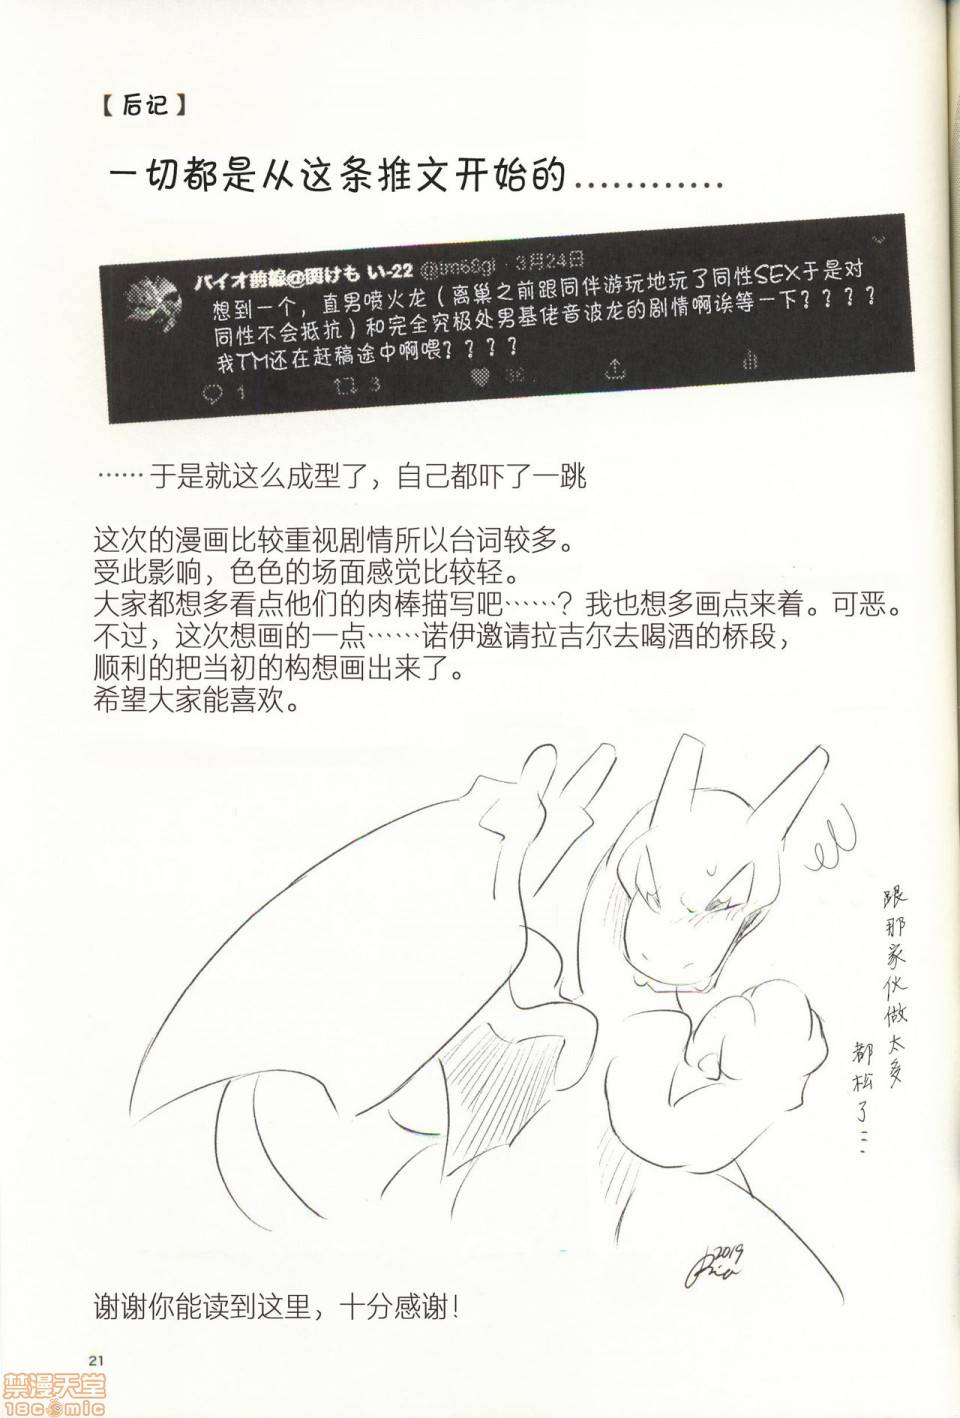 【后记】
一切都是从这条推文开始的…………
バイオ前線@関けも い-22 · 3月24日
想到一个，直男喷火龙（离巢之前跟同伴游玩地玩了同性SEX于是对
同性不会抵抗）和完全究极处男基佬音波龙的剧情啊诶等一下？？？？
我TM还在赶稿途中啊喂？？？？
1 3
……于是就这么成型了，自己都吓了一跳
这次的漫画比较重视剧情所以台词较多。
受此影响，色色的场面感觉比较轻。
大家都想多看点他们的肉棒描写吧……？我也想多画点来着。可恶。
不过，这次想画的一点……诺伊邀请拉吉尔去喝酒的桥段，
顺利的把当初的构想画出来了。
希望大家能喜欢。
跟那家伙做太多
都松了…
2019
谢谢你能读到这里，十分感谢！
21
禁漫天堂
18comic